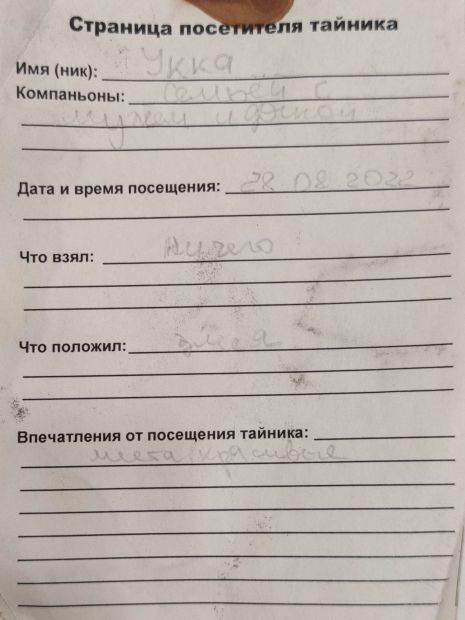 Страница посетителя тайника
Имя (ник): Укка
Компаньоны: Семьёй с
мужем и дочкой
Дата и время посещения: 28.08.2022
Что взял: Ничего
Что положил:
Впечатления от посещения тайника:
места красивые